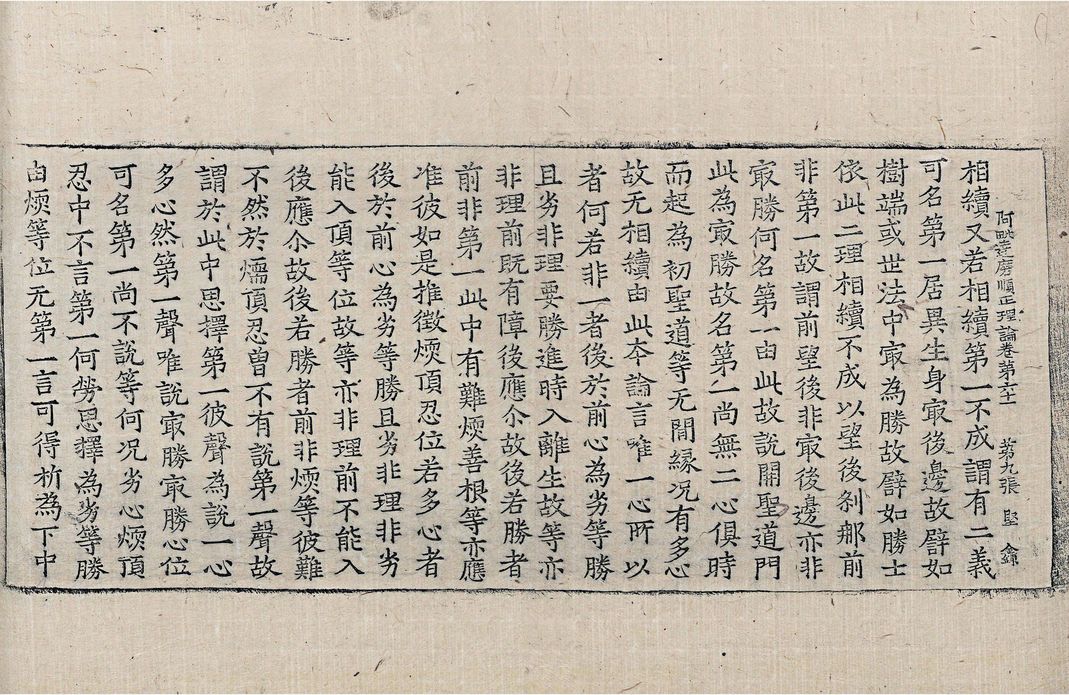 阿毗達磨順正理論卷第六十一 第九張 堅 鍮
相續又若相續第一不成謂有二義
可名第一居異生身㝡後邊故譬如
樹端或世法中㝡為勝故譬如勝士
依此二理相續不成以望後剎那前
非第一故謂前望後非㝡後邊亦非
㝡勝何名第一由此故說開聖道門
此為㝡勝故名第一尚無二心俱時
而起為初聖道等无間緣况有多心
故无相續由此夲論言唯一心所以
者何若非一者後於前心為劣等勝
且劣非理要勝進時入離生故等亦
非理前既有障後應尒故後若勝者
前非第一此中有難煗善根等亦應
准彼如是推徵煗頂忍位若多心者
後於前心為劣等勝且劣非理非劣
能入頂等位故等亦非理前不能入
後應尒故後若勝者前非煗等彼難
不然於煗頂忍曾不有說第一聲故
謂於此中思擇第一彼聲為說一心
多心然第一聲唯說㝡勝㝡勝心位
可名第一尚不說等何况劣心煗頂
忍中不言第一何勞思擇為劣等勝
由煗等位无第一言可得析為下中